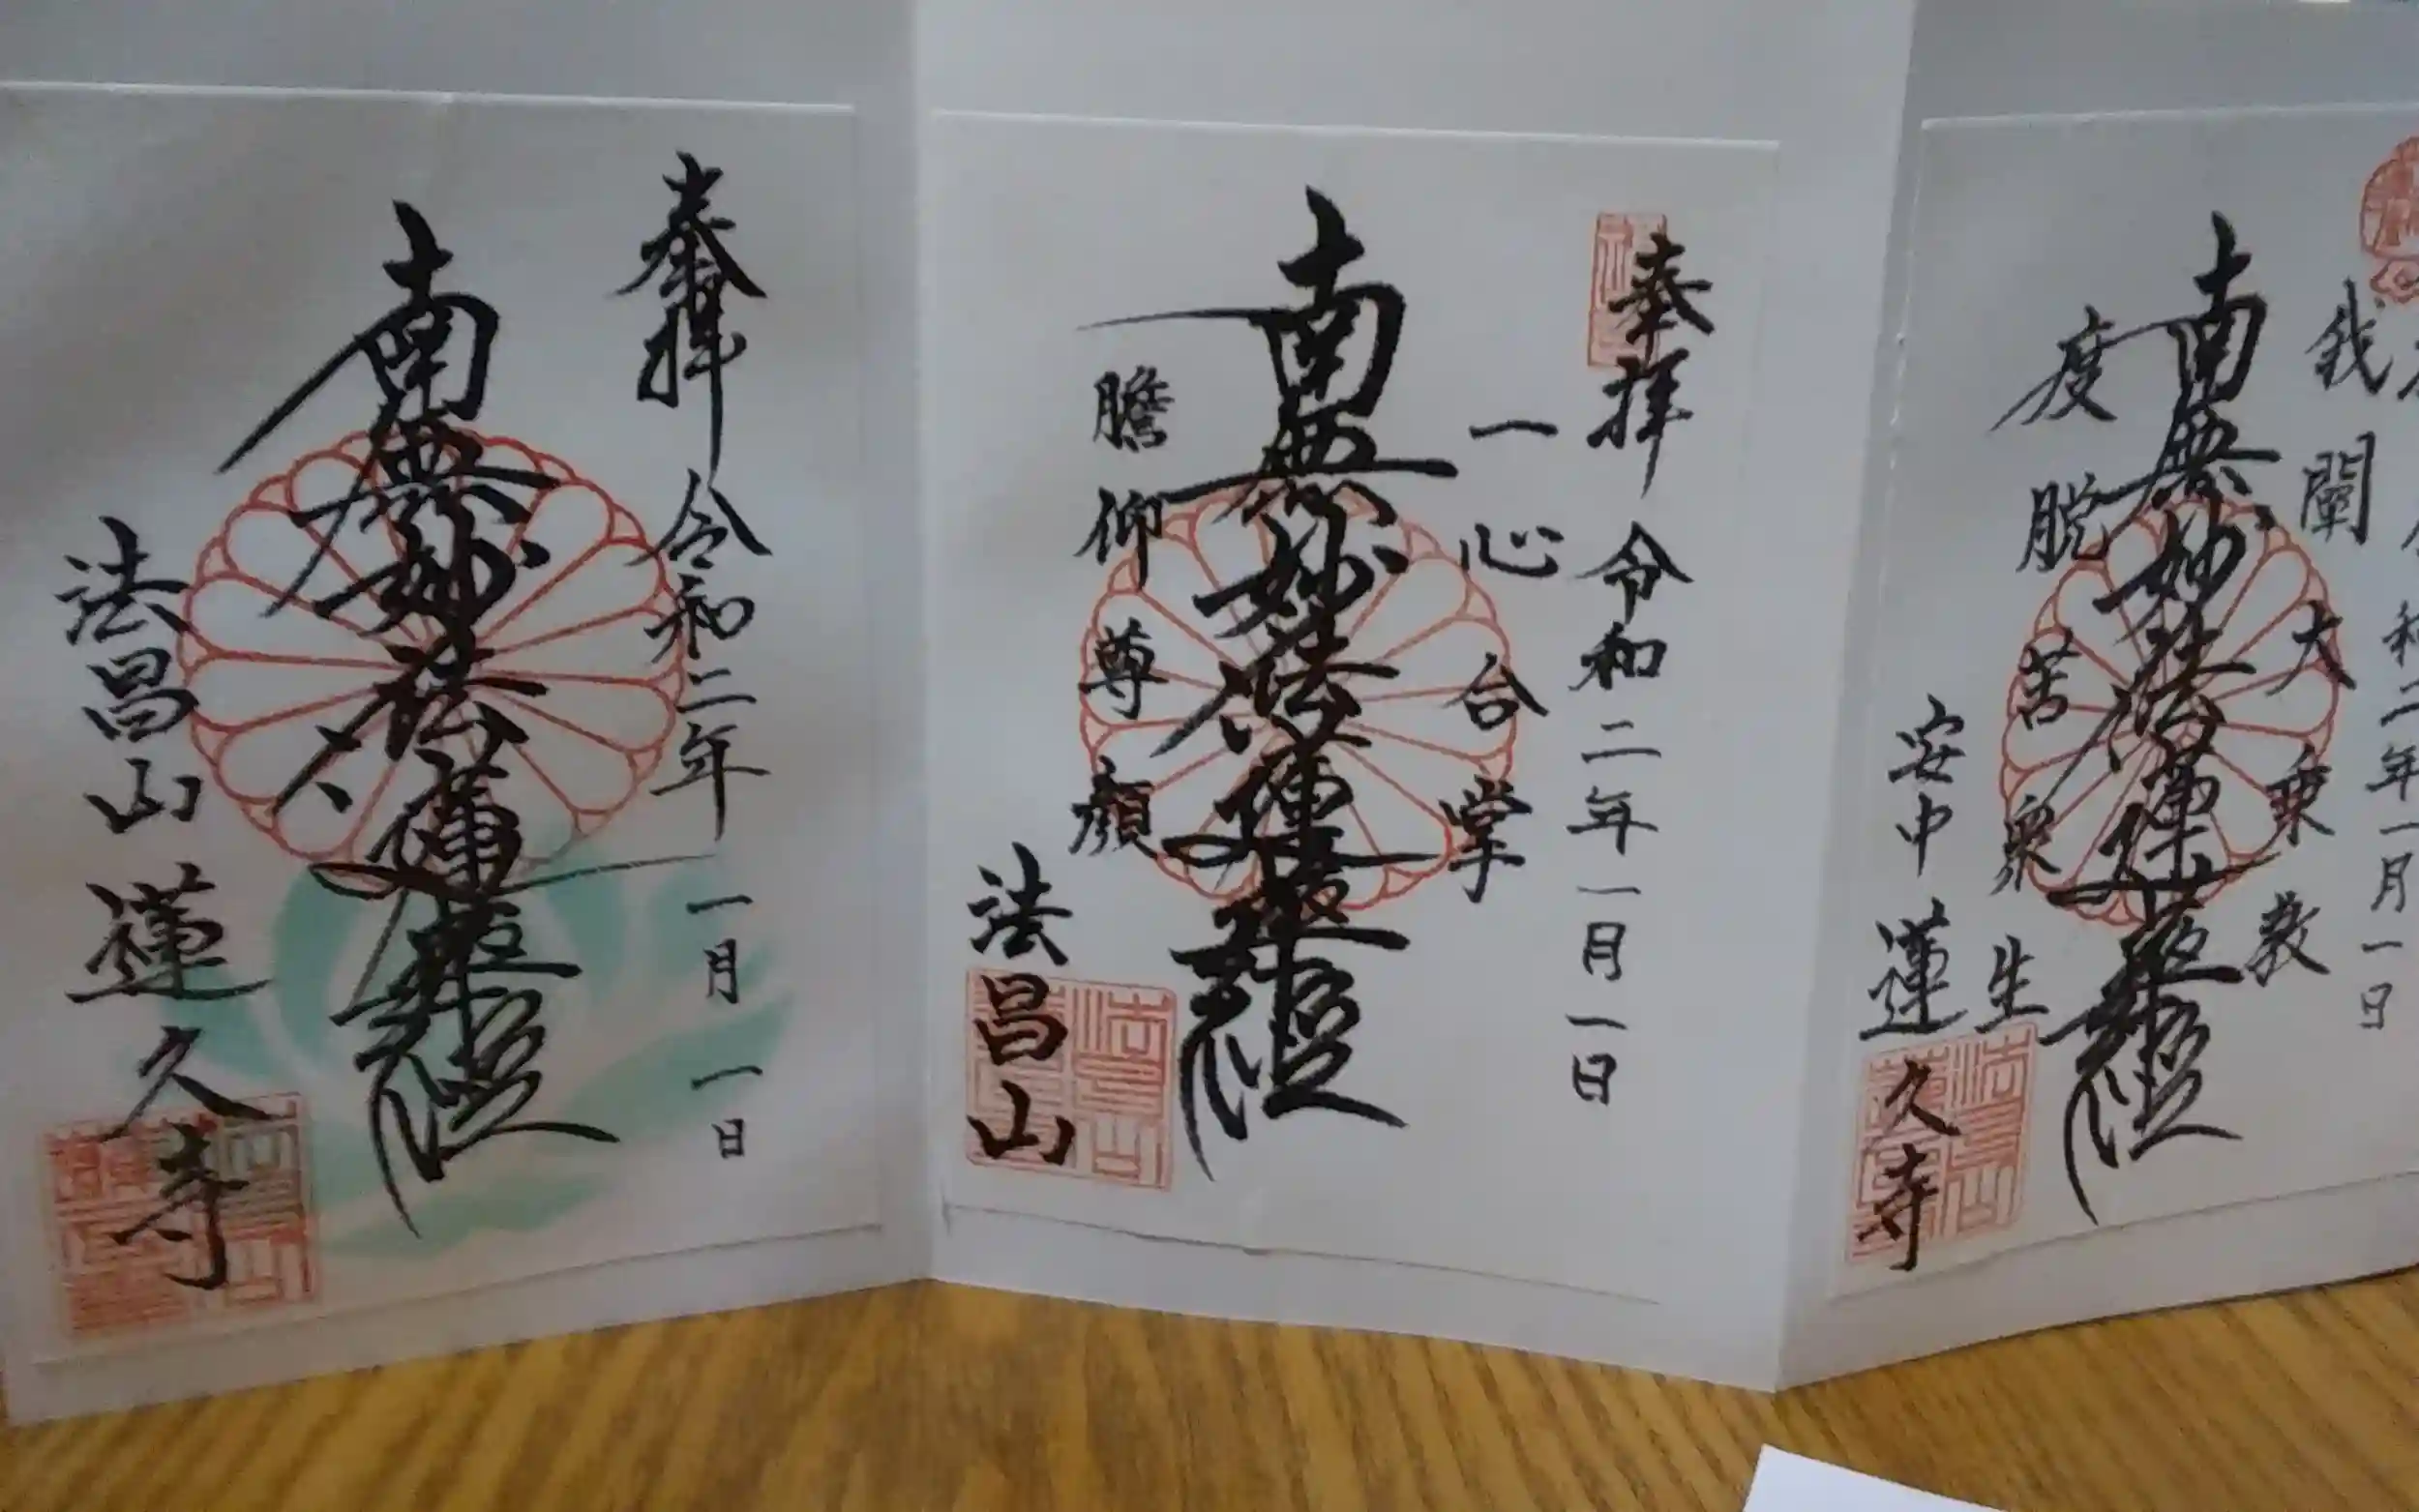 奉拝 令和二年 一月 一日
南無妙法蓮華経
法昌山 蓮久寺
奉拝 令和二年一月一日
一心合掌
南無妙法蓮華経
瞻仰尊顔
法昌山
和二年一月一日
我闡大乗教
南無妙法蓮華経
度脱苦衆生
安中 蓮久寺